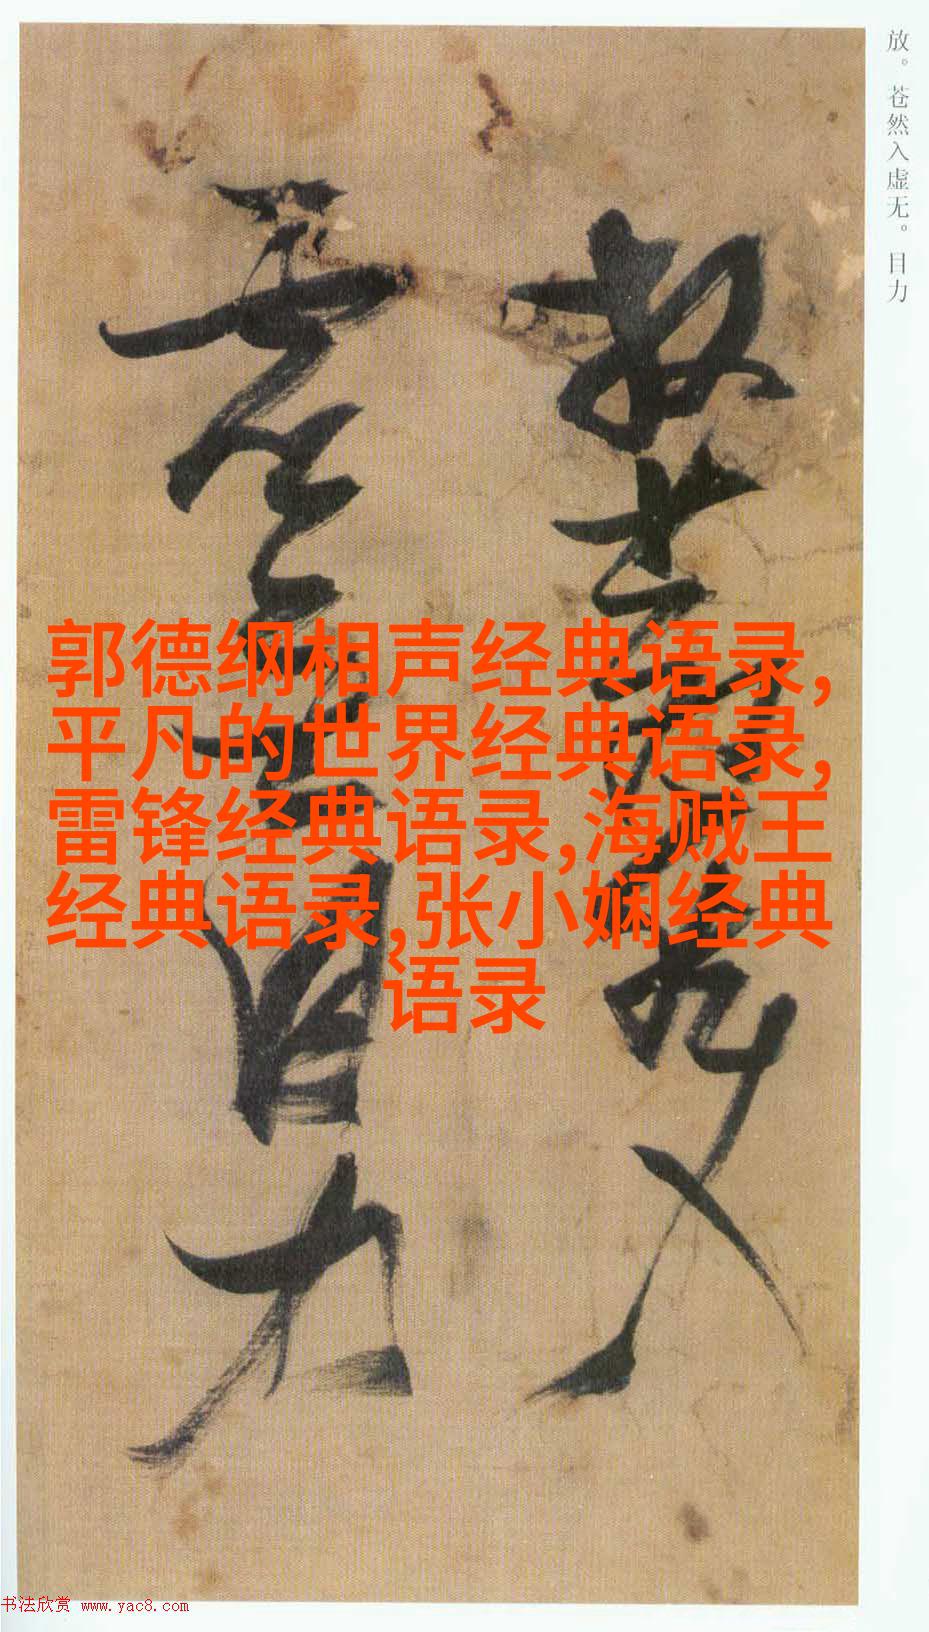 放。苍然入虚无。目力
放苍然入
虚无目力
郭德纲相声经典语录,
平凡的世界经典语录,
雷锋经典语录,海贼王
经典语录,张小娴经典
语录
书法欣赏 www.yac8.com